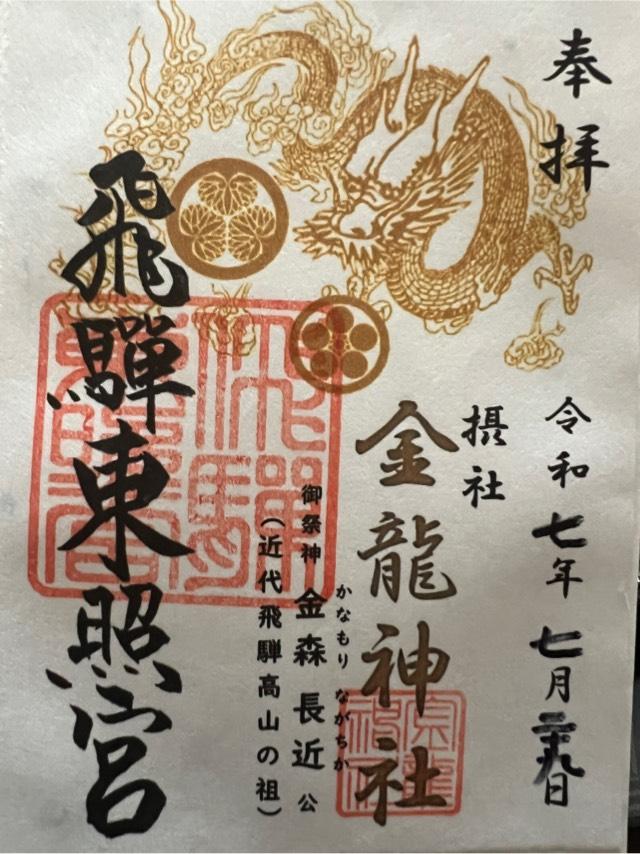 奉拝
令和七年 七月二十九日
摂社
金龍神社
かなもり ながちか
御祭神 金森 長近 公
(近代飛騨高山の祖)
飛騨東照宮